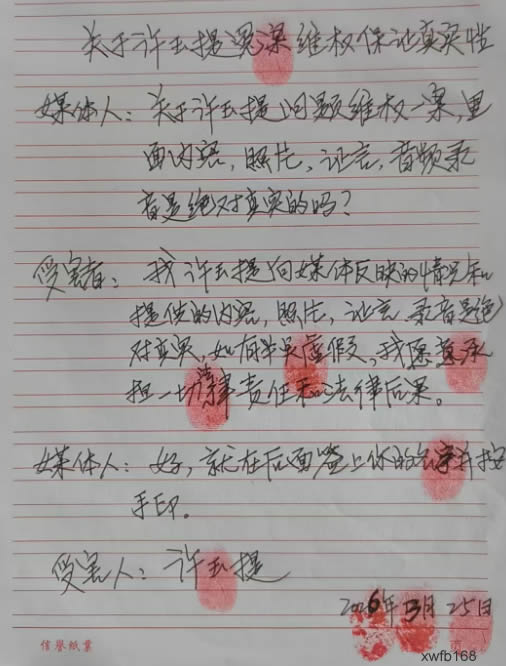 关于许玉提冤案维权保证真实性
媒体人：关于许玉提问题维权一案，里
面内容，照片，证言，音频录
音是绝对真实的吗？
受害者：我许玉提向媒体反映的情况和
提供的内容，照片，证言，录音是绝
对真实，如有半点虚假，我愿意承
担一切法律责任和法律后果。
媒体人：好，就在后面签上你的名字并按
手印。
受害人：许玉提
2026年3月25日
信誉纸业
xwfb168